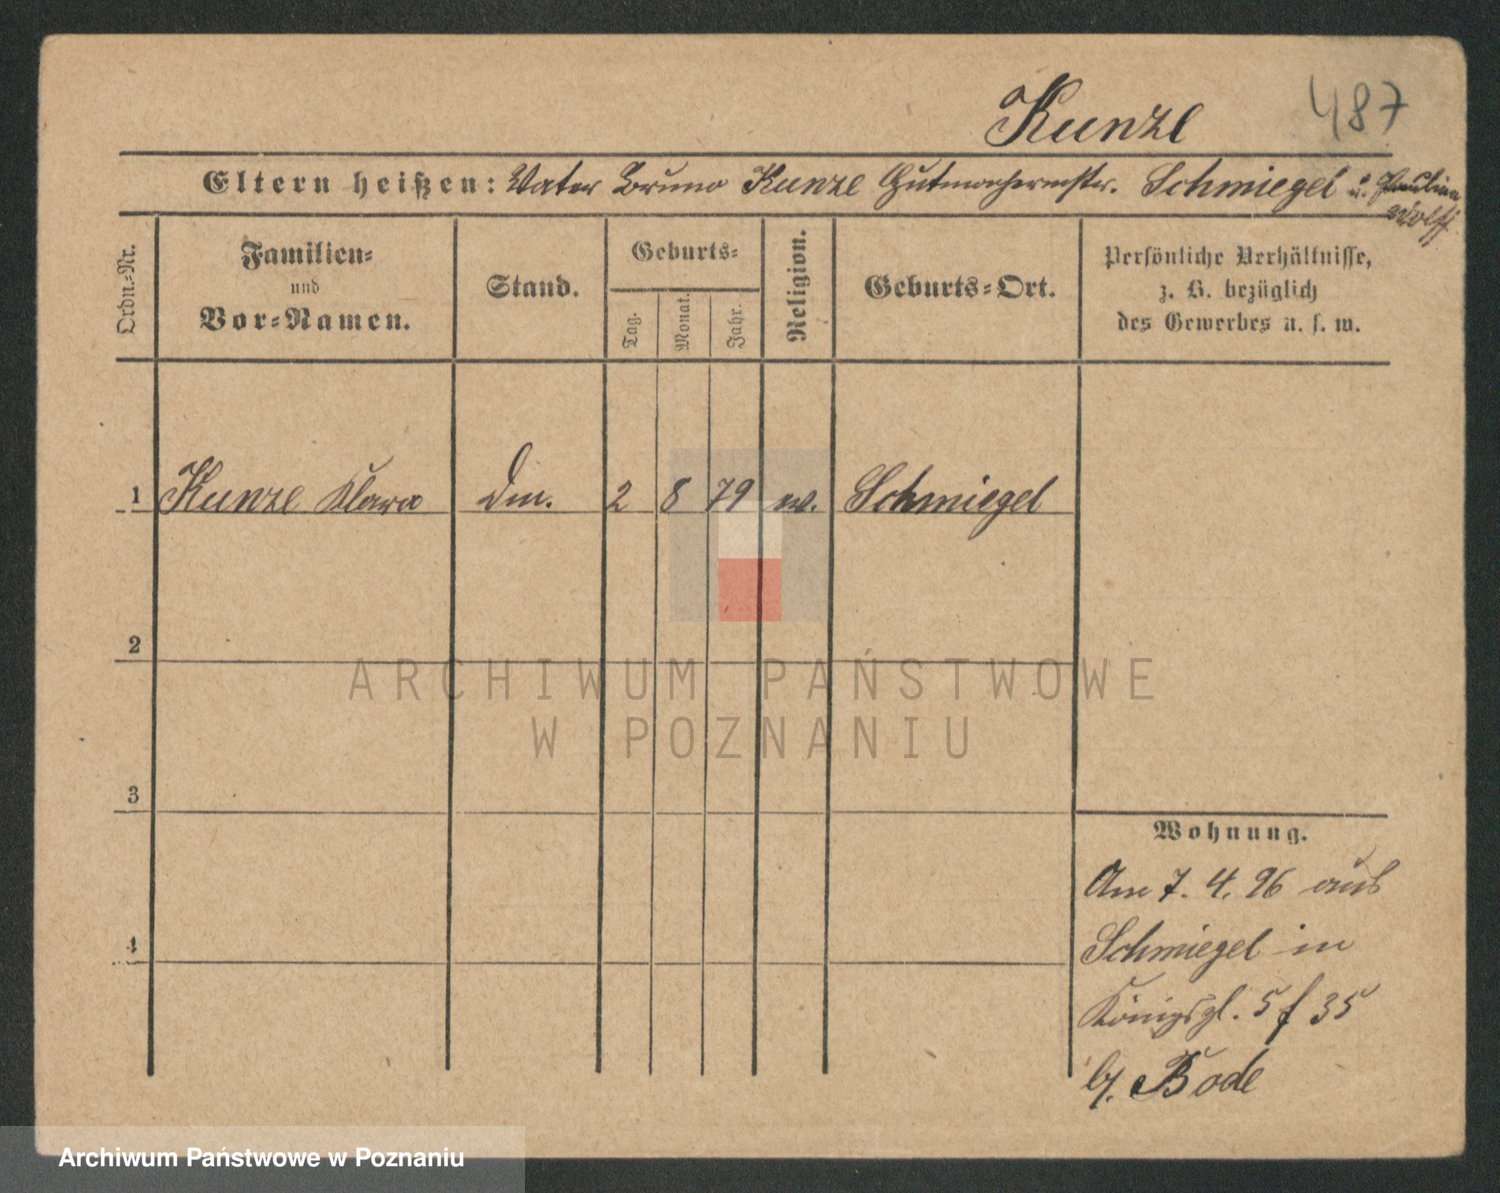 Kunze 487
Eltern heißen: Vater Bruno Kunze Hutmachermstr. Schmiegel u. Paulina
Wolff
Ordn.-Nr.
Familien-
und
Vor-Namen.
Stand.
Geburts-
Tag.
Monat.
Jahr.
Religion.
Geburts-Ort.
Persönliche Verhältnisse,
z. B. bezüglich
des Gewerbes u. s. w.
1 Kunze Klara 2 8 79 Schmiegel
2
ARCHIWUM PAŃSTWOWE
W POZNANIU
3
Wohnung.
Am 7. 4. 96 aus
Schmiegel in
4
Königspl. 5 f 35
b/. Bode
Archiwum Państwowe w Poznaniu